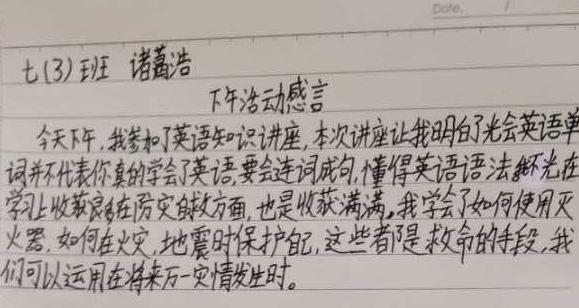 Date. /
七(3)班 诸葛浩
下午活动感言
今天下午,我参加了英语知识讲座,本次讲座让我明白了光会英语单
词并不代表你真的学会了英语,要会连词成句,懂得英语语法,不光在
学习上收获良多在防灾自救方面,也是收获满满。我学会了如何使用灭
火器.如何在火灾,地震时保护自己,这些都是救命的手段,我
们可以运用在将来万一灾情发生时。